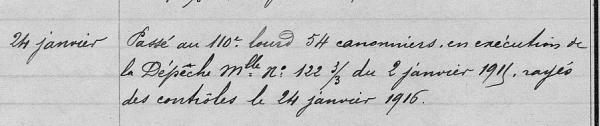 24 janvier Passé au 110e lourd 54 canonniers, en exécution de
la Dépêche Mlle No 122 3/3 du 2 janvier 1915, rayés
des contrôles le 24 janvier 1916.